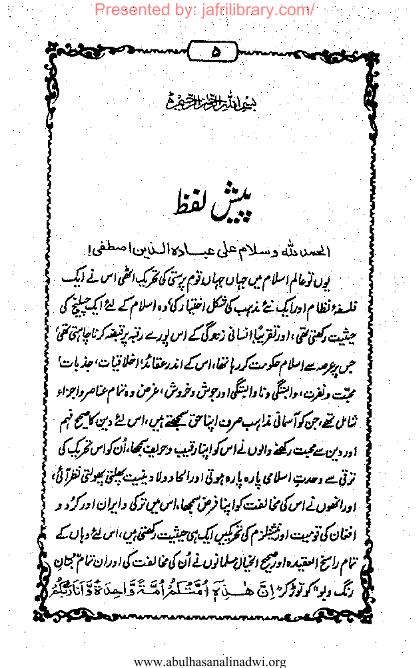 Presented by: jafrilibrary.com/
۵
بسم اللہ الرحمن الرحیم
پیش لفظ
الحمد للہ وسلام علی عبادہ الذین اصطفی!
یوں تو عالم اسلام میں جہاں جہاں قوم پرستی کی تحریک اٹھی اس نے ایک
فلسفۂ نظام اور ایک نئے مذہب کی شکل اختیار کی، وہ اسلام کے لئے ایک چیلنج کی
حیثیت رکھتی تھی، اور تقریبًا انسانی زندگی کے اس پورے رقبہ پر قبضہ کرنا چاہتی تھی
جس پر عرصہ سے اسلام حکومت کر رہا تھا، اس کے اندر عقائد، اخلاقیات، جذبات،
محبت و نفرت، وابستگی و ناوابستگی اور جوش و خروش، غرض وہ تمام عناصر و اجزاء
شامل تھے، جن کو آسمانی مذاہب صرف اپنا حق سمجھتے ہیں، اس لئے دین کا صحیح فہم
اور دین سے محبت رکھنے والوں نے اس کو اپنا رقیب و حریف سمجھا، اُن کو اس تحریک کی
ترقی سے وحدت اسلامی پارہ پارہ ہوتی اور الحاد و لادینیت پھیلتی پھولتی نظر آئی،
اور انھوں نے اس کی مخالفت کو اپنا فرض سمجھا، اس میں ترکی و ایران اور کرد و
افغان کی قومیت اور نیشنلزم کی تحریکیں ایک ہی حیثیت رکھتی ہیں، اس لئے وہاں کے
تمام راسخ العقیدہ اور صحیح الخیال مسلمانوں نے اُن کی مخالفت کی اور ان تمام "بتانِ
رنگ و بو" کو توڑ کر اِنَّ هٰذِهٖ اُمَّتُكُمْ اُمَّةً وَّاحِدَةً وَّاَنَا رَبُّكُمْ
www.abulhasanalinadwi.org